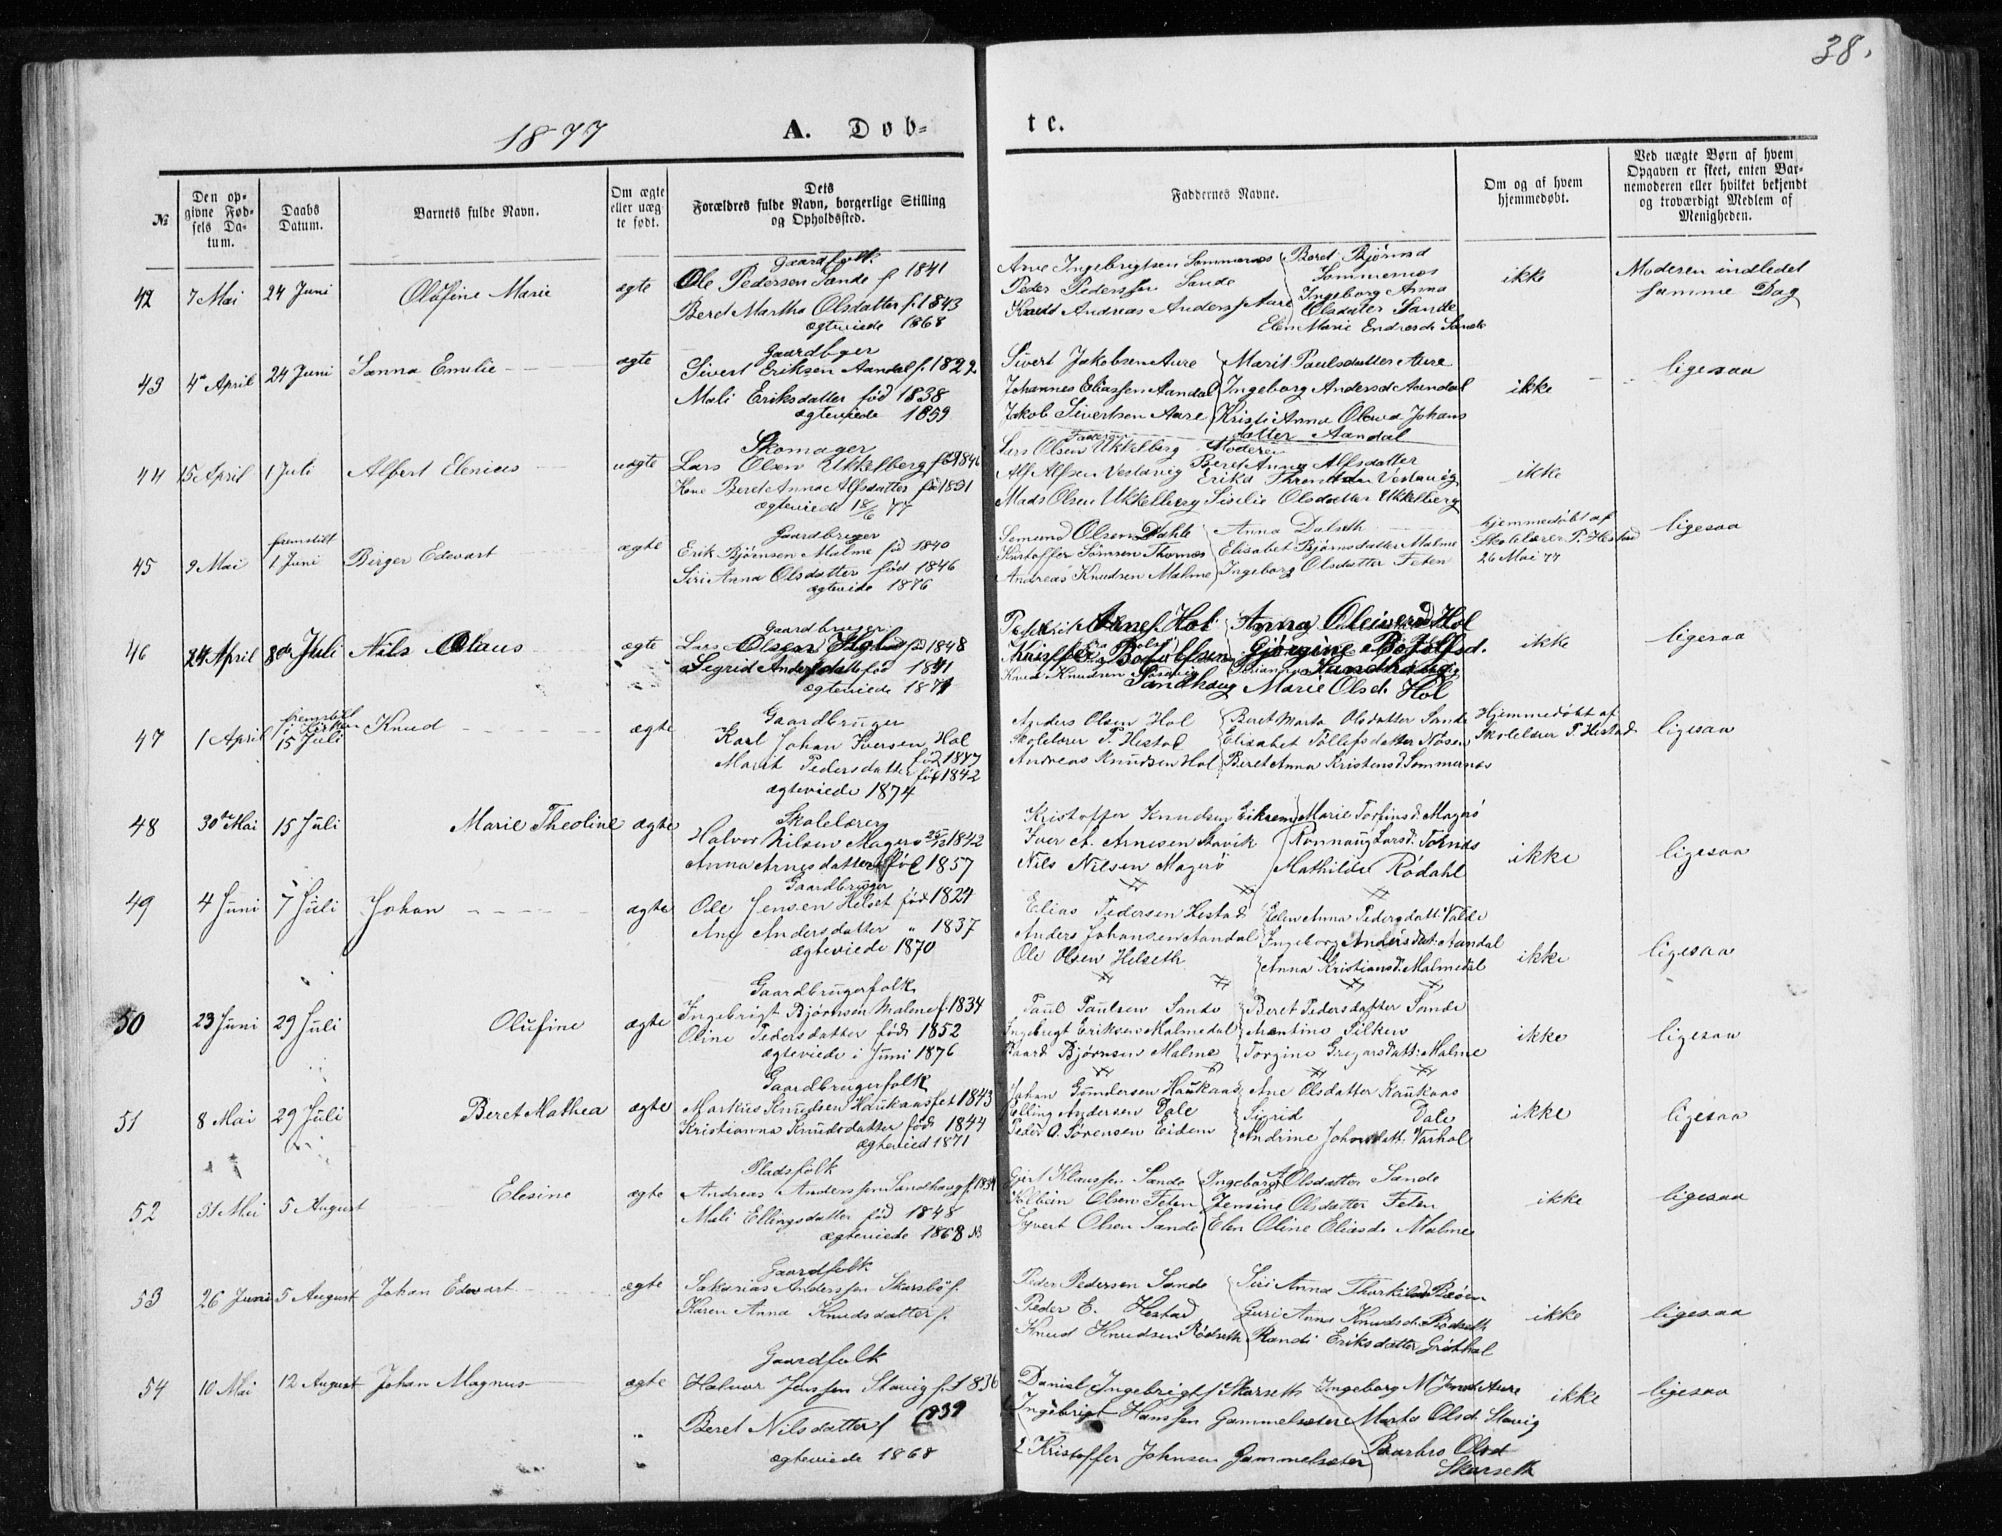 38.
1877
A. Døb-
te.
№
Den op-
givne Fød-
sels Da-
tum.
Daabs
Datum.
Barnets fulde Navn.
Om ægte
eller uæg-
te født.
Dets
Forældres fulde Navn, borgerlige Stilling
og Opholdssted.
Faddernes Navne.
Om og af hvem
hjemmedøbt.
Ved uægte Børn af hvem
Opgaven er skeet, enten Bar-
nemoderen eller hvilket bekjendt
og troværdigt Medlem af
Menigheden.
42 7 Mai 24 Juni Olufine Marie ægte
Gaardfolk.
Ole Pedersen Sande f 1841
Beret Martha Olsdatter f. 1843
ægteviede 1868
Arne Ingebrigtsen Sommernes Beret Bjørnsd
Sommernes
Peder Pederssen Sande Ingeborg Anna
Olsdatter Sande
Andreas Anderss Aare
Elen Marie Endresd Sande
ikke
Moderen indledet
samme Dag
43 4 April 24 Juni Sanna Emilie ægte
Gaardbger
Sivert Eriksen Aandal f. 1829
Mali Eriksdatter fød 1838
ægteviede 1859
Sivert Jakobsen Aare Marit Paulsdatter Aure
Johannes Eliassen Aandal Ingeborg Andersd Aandal
Jakob Sivertsen Aare Kristi Anna Olava Johans
datter Aandal
ikke
ligesaa
44 15 April 1 Juli Albert Elenius uægte
Skomager
Lars Olsen Ukkelberg fød 1846
Kone Beret Anna Alfsdatter fød 1851
ægteviede 18/6 77
Faderen Moderen
Lars Olsen Ukkelberg Beret Anna Alfsdatter
Alf Alfsen Vestavig
Mads Olsen Ukkelberg Siselie Olsdatter Ukkelberg
ikke
45 9 Mai
fremstilt
1 Juni Birger Edevart ægte
Gaardbruger
Erik Bjørnsen Malme fød 1840
Siri Anna Olsdatter fød 1846
ægteviede 1876
Semund Olsen Dahle Anna Dalseth
Kristoffer Simsen Thornes Elisabet Bjørnsdatter Malme
Andreas Knudsen Malme Ingeborg Olsdatter Feten
hjemmedøbt af
Skolelærer P. Hestad
26 Mai 77
ligesaa
46 24 April 8de Juli Nils Olaus ægte
Gaardbruger
Lars Olsen Hol fød 1848
Sigrid Andersdatter fød 1841
ægteviede 1871
Hol Anna Hol
Sandhaug
Sandhaug Marie Olsd. Hol
ikke
ligesaa
47 1 April
fremstilt
i Kirken
15 Juli Knud ægte
Gaardbruger
Karl Johan Iversen Hol
fød 1847
Marit Pedersdatter fød 1842
ægteviede 1874
Anders Olsen Hol Beret Marta Olsdatter Sande
Skolelærer P. Hestad Elisabet Tollefsdatter Nøsen
Andreas Knudsen Hol Beret Anna Kristensd Sommernes
Hjemmedøbt af
Skolelærer P. Hestad
ligesaa
48 30te Mai 15 Juli Marie Theoline ægte
Skolelærer
Halvor Nilsen Magerø 1842
Anna Arnesdatter fød 1857
Kristoffer Knudsen Eikrem Marie Torfinsd. Magerø
Iver A. Arnesen Stavik Rønnaug Larsd. Tornes
Nils Nilsen Magerø Mathilde Rødahl
ikke
ligesaa
49 4 Juni 7 Juli Johan ægte
Gaardbruger
Ole Jensen Helset fød 1824
Ane Andersdatter " 1837
ægteviede 1870
Elias Pedersen Hestad Elen Anna Pedersdatt. Valde
Anders Johansen Aandal Ingeborg Andersdat. Aandal
Ole Olsen Helseth Anna Kristiansd. Malmedal
ikke
ligesaa
50 23 Juni 29 Juli Olufine ægte
Gaardbrugerfolk
Ingebrigt Bjørnsen Malme f. 1834
Oline Pedersdatter fød 1852
ægteviede i Juni 1876
Paul Paulsen Sande Beret Pedersdatter Sande
Ingebrigt Eriksen Malmedal
Baard Bjørnsen Malme Torgine Gregarsdatt. Malme
ikke
ligesaa
51 8 Mai 29 Juli Beret Mathea ægte
Gaardbrugerfolk
Markus Knudsen Haukaas fød 1843
Kristianna Knudsdatter fød 1844
ægtevied 1871
Johan Gundersen Haukaas Ane Olsdatter Haukaas
Elling Andersen Dale Sigrid Dale
Peder O. Sørensen Eidem Andrine Johansdatt. Varhol
ikke
ligesaa
52 31 Mai 5 August Elesine ægte
Pladsfolk
Andreas Anderssen Sandhaug f. 1834
Mali Ellingsdatter fød 1848
ægteviede 1868
Gjert Klaussen Sande Ingeborg A Olsdatter Sande
Kolbein Olsen Feten Jensine Olsdatter Feten
Syvert Olsen Sande Elen Oline Eliasd. Malme
ikke
ligesaa
53 26 Juni 5 August Johan Edvart ægte
Gaardfolk
Sakarias Anderssen Skarsbø f.
Karen Anna Knudsdatter f.
Peder Pedersen Sande Siri Anna
Peder E. Hestad Guri Anna Knudsd. Rødseth
Knud Knudsen Rødseth Randi Eriksdatter Grøthol
ikke
ligesaa
54 10 Mai 12 August Johan Magnus ægte
Gaardfolk
Halvor Jenssen Stavig f. 1836
Beret Nilsdatter f 1839
ægteviede 1868
Daniel Ingebrigts Skarseth Ingeborg M Jensd Aure
Ingebrigt Hanssen Gammelsæter Marta Olsd. Stavig
Kristoffer Johnsen Gammelsæter Baarbro Olsd
Skarseth
ikke
ligesaa